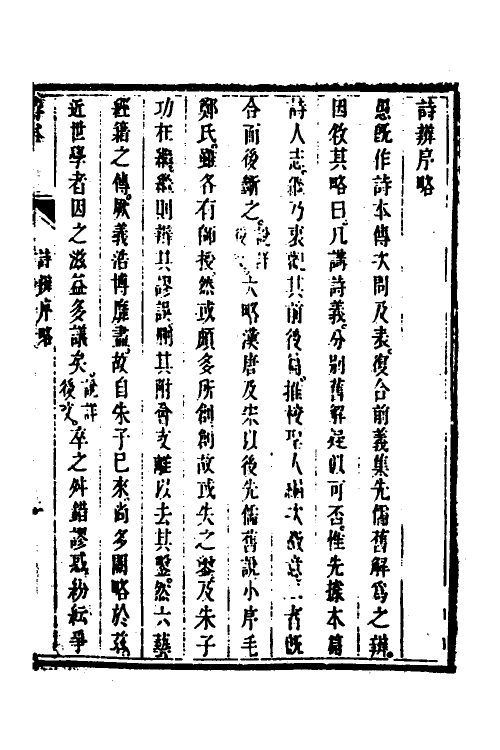 詩辨序略
愚旣作詩本傳次問及表。復合前義集先儒舊解爲之辨。
因敘其略曰。凡講詩義。分别舊解疑似可否。惟先據本篇
詩人志。然乃求紀其前後旬。推校聖人編次微意。二者旣
合而後斷之。說詳後
大略漢唐及宋以後先儒舊說小序毛
鄭氏。雖各有師授。然或頗多所創。創故或失之鑿。及朱子
功在。則辨其謬誤。刪其附會支離以去其鑿。然六藝
經籍之傳。厥義浩博靡盡。故自朱子已來。尚多闕略於兹。
近世學者因之滋益多議矣。說詳後文。卒之舛錯謬爲紛紜爭
詩辨序略